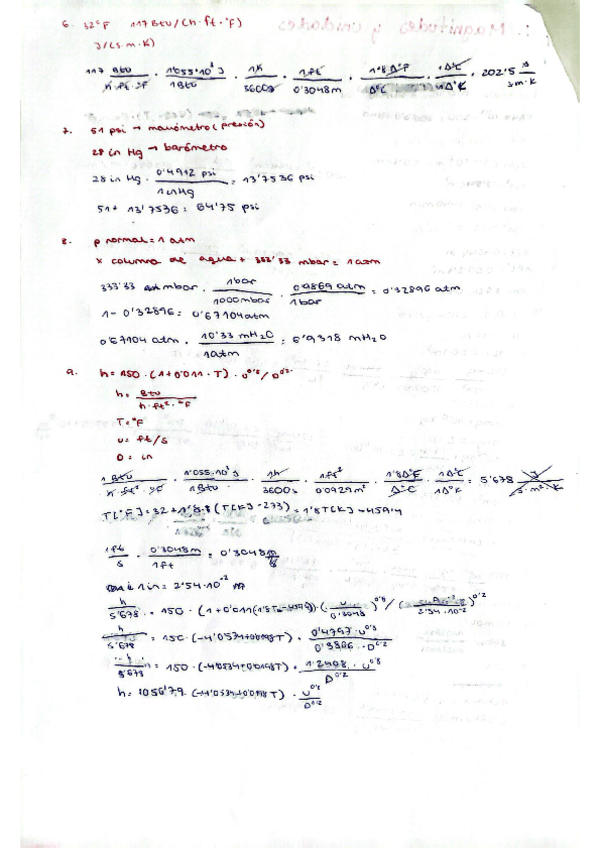 6. 32°F 117 Btu/(h·ft·°F)
J/(s·m·K)
117 Btu/h·ft·°F · 1'055·10³ J/1Btu · 1h/3600s · 1ft/0'3048m · 1'8Δ°F/Δ°C · 1Δ°C/1Δ°K · 202'5 J/s·m·K
7. 51 psi → manómetro (presión)
28 in Hg → barómetro
28 in Hg · 0'4912 psi/1 inHg = 13'7536 psi
51 + 13'7536 = 64'75 psi
8. p normal = 1 atm
x columna de agua + 333'33 mbar = 1 atm
333'33 mbar · 1bar/1000mbar · 0'9869 atm/1 bar = 0'32896 atm
1 - 0'32896 = 0'67104 atm
0'67104 atm · 10'33 mH₂O/1atm = 6'9318 mH₂O
9. h = 150 · (1 + 0'011 · T) · u^0'8 / D^0'2
h = Btu/h·ft²·°F
T = °F
u = ft/s
D = in
1 Btu/h·ft²·°F · 1'055·10³ J/1Btu · 1h/3600s · 1ft²/0'0929m² · 1'8Δ°F/Δ°C · 1Δ°C/1Δ°K = 5'678 J/s·m²·K
T[°F] = 32 + 1'8 (T[K] - 273) = 1'8T[K] - 459'4
1ft/s · 0'3048m/1ft = 0'3048 m/s
1 in = 2'54·10⁻² m
h/5'678 = 150 · (1 + 0'011(1'8T - 459'4)) · (u/0'3048)^0'8 / (D/2'54·10⁻²)^0'2
h/5'678 = 150 · (-4'0534 + 0'0198T) · 0'4797 · u^0'8/0'3806 · D^0'2
= 150 · (-4'0534 + 0'0198T) · 1'2408 · u^0'8/D^0'2
h = 1056'79 · (-4'0534 + 0'0198T) · u^0'8/D^0'2